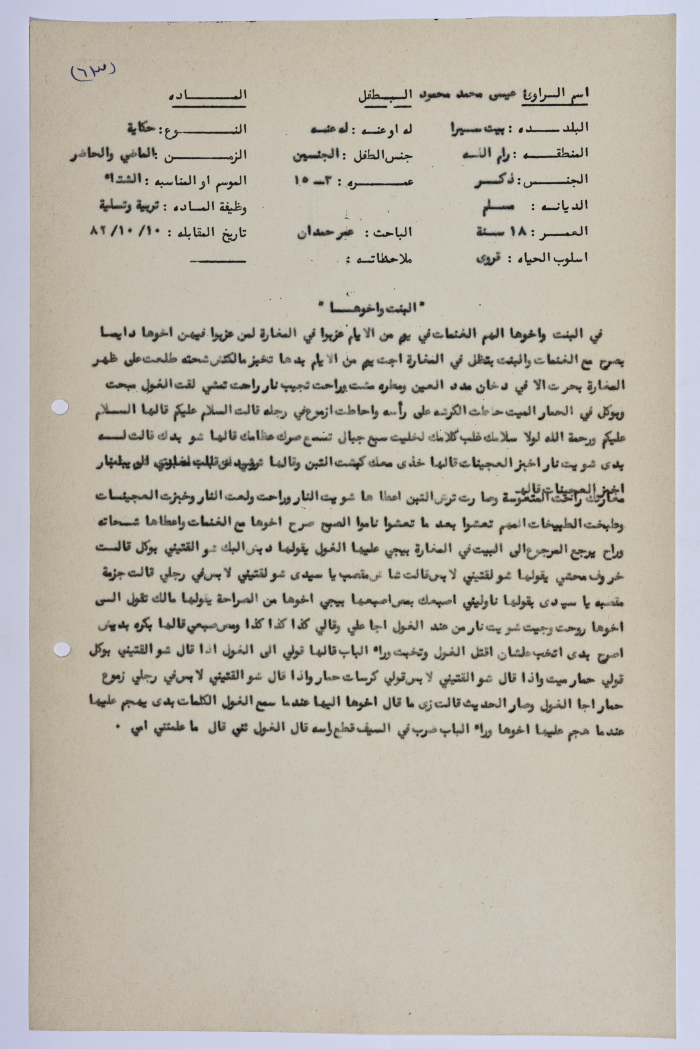 (٦٣)
اسم الراوي: عيسى محمد محمود البطفل المادة
البلده : بيت سيرا له او عنه : له عنه النوع : حكاية
المنطقه : رام الله جنس الطفل : الجنسين الزمن : الماضي والحاضر
الجنس : ذكر عمره : ٣ــ١٥ الموسم او المناسبه : الشتاء
الديانه : مسلم وظيفة الماده : تربية وتسلية
العمر : ١٨ سنة الباحث : عمر حمدان تاريخ المقابله : ١٠/ ١٠/ ٨٢
اسلوب الحياه : قروى ملاحظاته :
" البنت واخوها "
في البنت واخوها الهم الغنمات في يوم من الايام عزبوا في المغارة لمن عزبوا فيهن اخوها دايما
يصرح مع الغنمات والبنت بتظل في المغارة اجت يوم من الايام بدها تخبز مالكتش شحته طلعت على ظهر
المغارة بحرت الا في دخان مدد العين ومطره مشت وراحت تجيب نار راحت تمشي لقت الغول مبحت
وبوكل في الحمار الميت حاطت الكرشه على رأسه واحاطت ازموع في رجله قالت السلام عليكم قالها السلام
عليكم ورحمة الله لولا سلامك غلب كلامك لخليت سبع جبال تسمع صرك عظامك قالها شو بدك قالت له
بدى شويت نار اخبز العجينات قالها خذى معك كمشت التبن وقالها
اخبز العجينات قالها
مغارتك راحت المتعوسة وصارت ترش التبن اعطاها شويت النار وراحت ولعت النار وخبزت العجينات
وطبخت الطبيخات المهم تعشوا بعد ما تعشوا ناموا الصبح صرح اخوها مع الغنمات واعطاها شحماته
وراح يرجع المرجوع الى البيت في المغارة بيجي عليها الغول يقولها دبش اليك شو القتيني بوكل قالت
خروف محشي يقولها شو لقتيني لابس قالت شاش مقصب يا سيدى شو لقتيني لابس في رجلي قالت جزمة
مقصبه يا سيدى يقولها ناوليني اصبعك بمص اصبعها بيجي اخوها من الصراحة يقولها مالك تقول الى
اخوها روحت وجيت شويت نار من عند الغول اجا علي وقالي كذا كذا كذا ومص صبعي قالها بكره بديش
اصرح بدى اتخب علشان اقتل الغول وتخبت وراء الباب قالها قولي الى الغول اذا قال شو القتيني بوكل
قولي حمار ميت واذا قال شو القتيني لابس قولي كرسات حمار واذا قال شو القتيني لابس في رجلي زموع
حمار اجا الغول وصار الحديث قالت زى ما قال اخوها اليها عندما سمع الغول الكلمات بدى يهجم عليها
عندما هجم عليها اخوها وراء الباب ضرب في السيف قطع راسه قال الغول ثني قال ما علمتني امي .